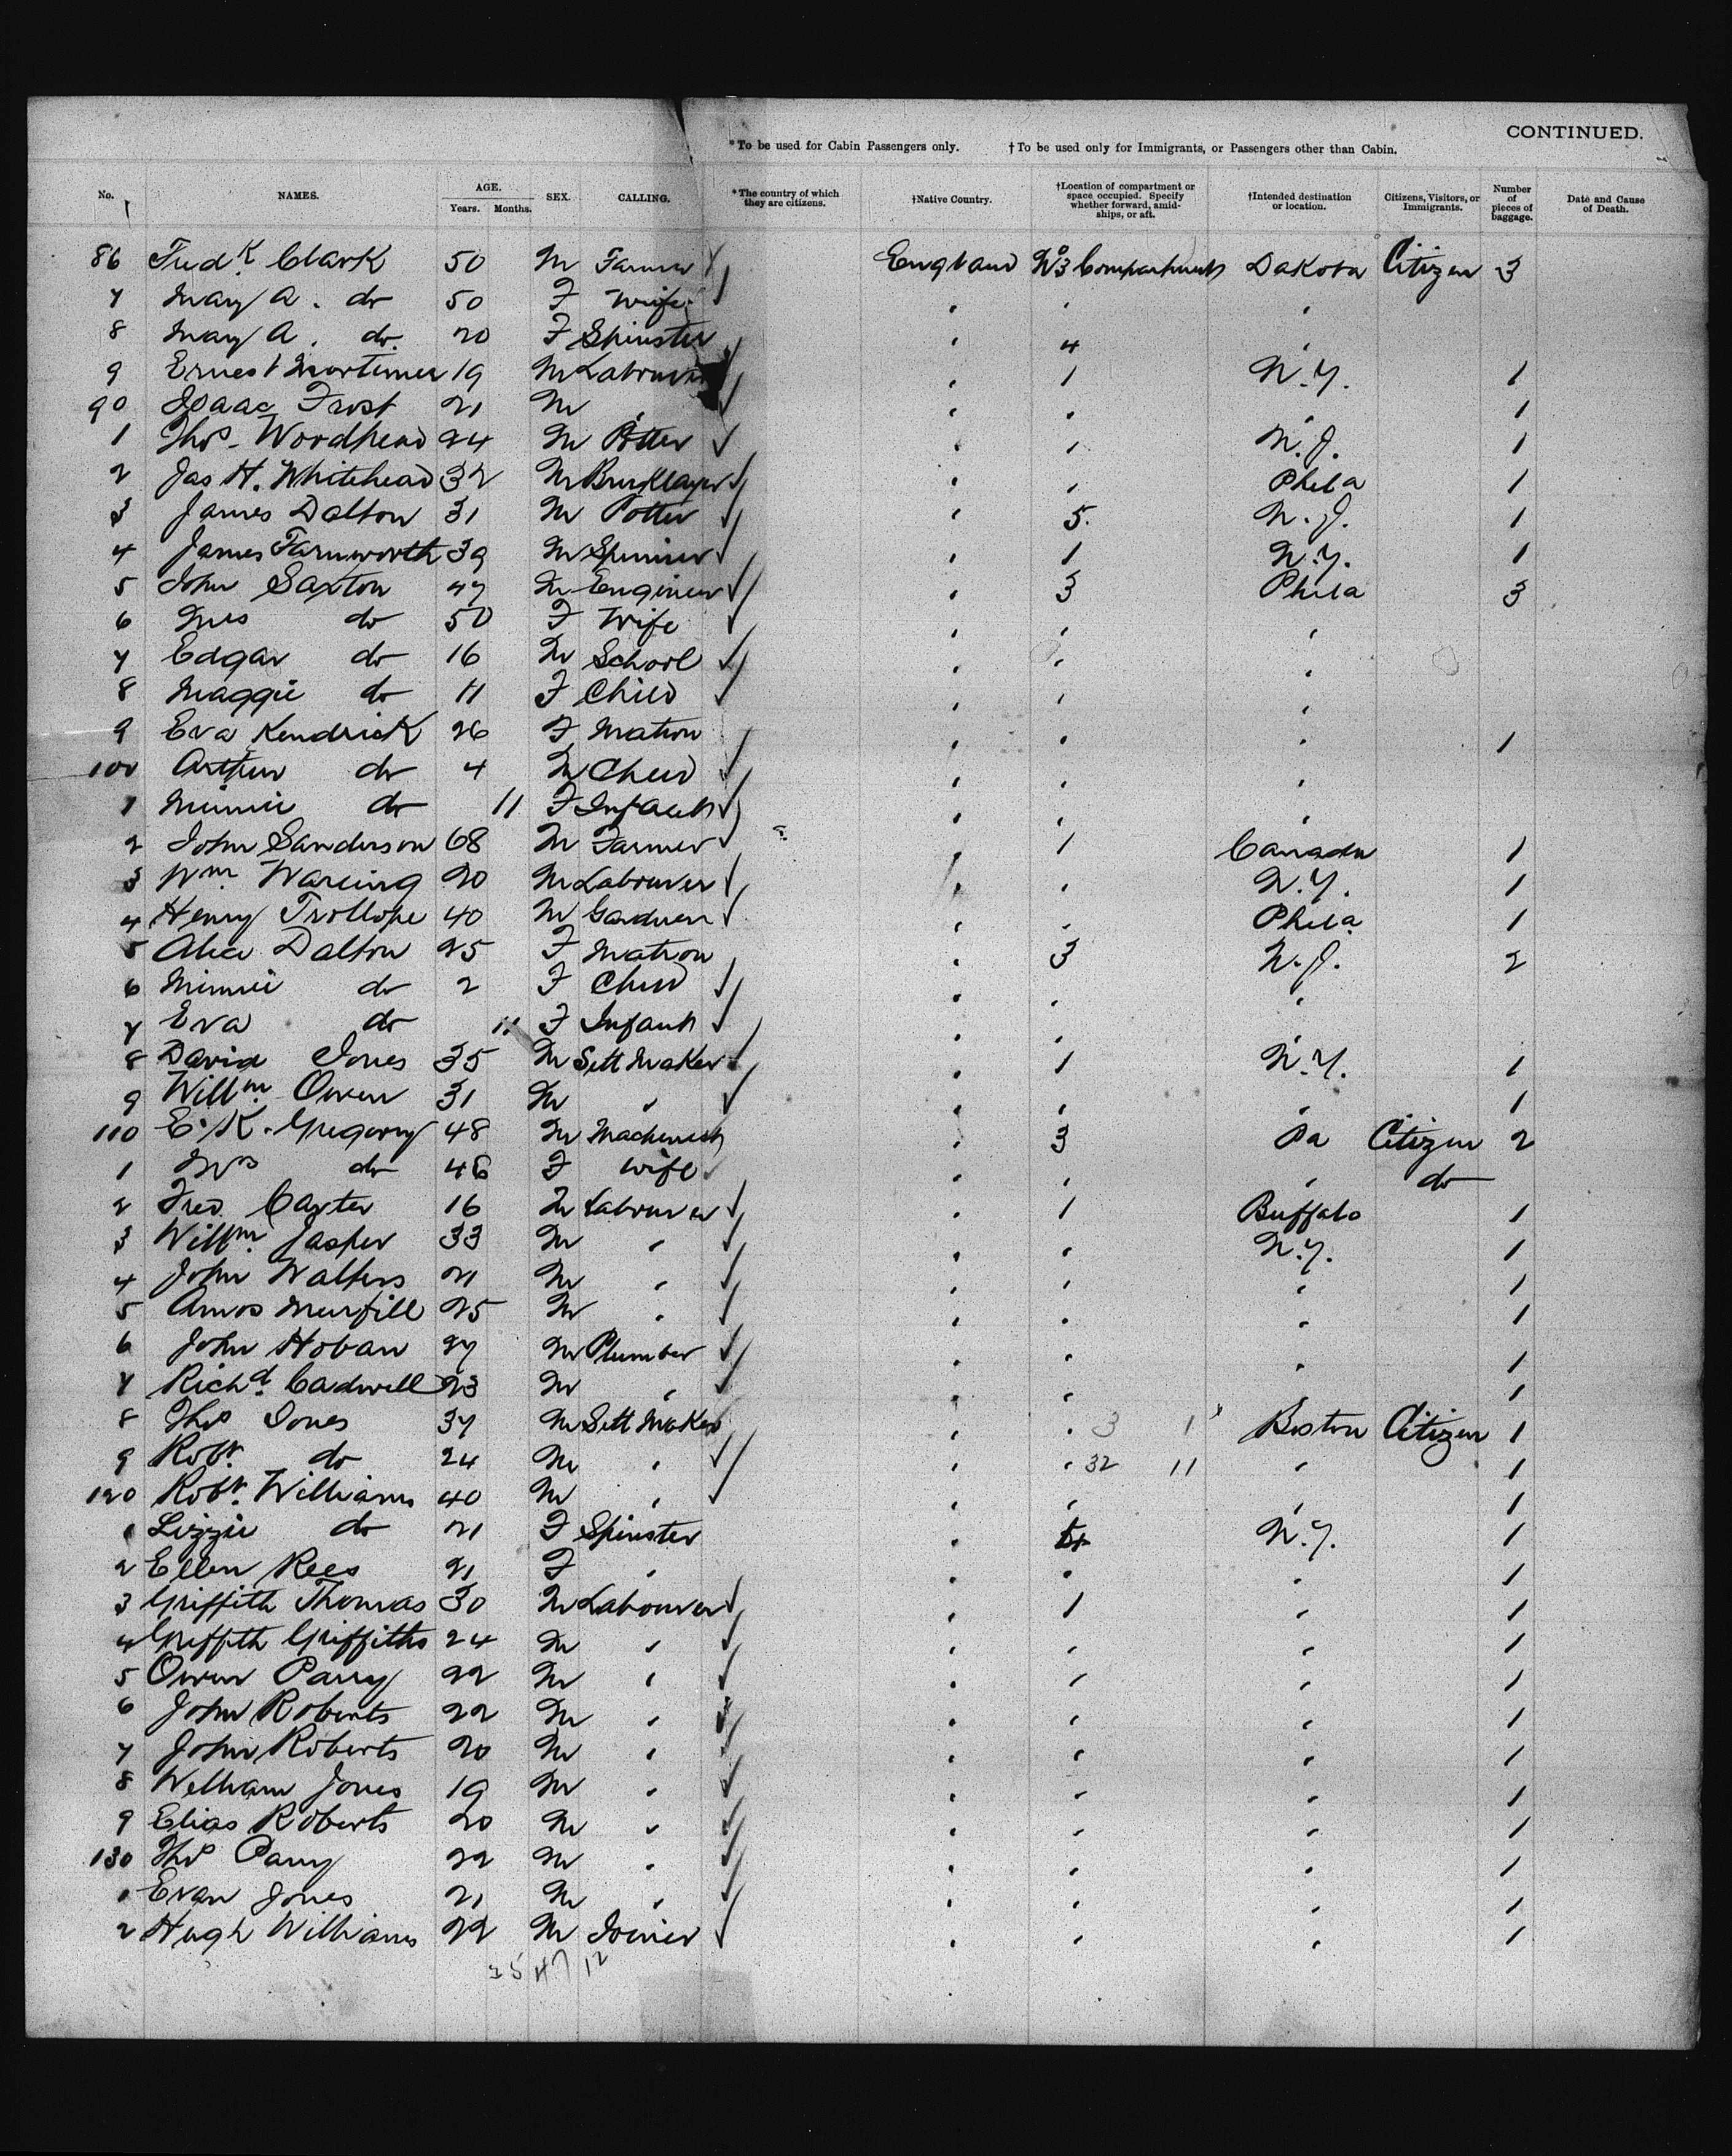 CONTINUED.
*To be used for Cabin Passengers only. †To be used only for Immigrants, or Passengers other than Cabin.
No. NAMES. AGE. Years. Months. SEX. CALLING. *The country of which they are citizens. †Native Country. †Location of compartment or space occupied. Specify whether forward, amidships, or aft. †Intended destination or location. Citizens, Visitors, or Immigrants. Number of pieces of baggage. Date and Cause of Death.
86 Fredk. Clark 50 M Farmer England No 3 Compartment Dakota Citizen 3
7 Mary A. do 50 F Wife " " "
8 Mary A. do. 20 F Spinster " 4 "
9 Ernest Mortimer 19 M Labourer " 1 N.Y. 1
90 Isaac Frost 21 M " " " " 1
1 Thos Woodhead 24 M Potter " " N.J. 1
2 Jas H. Whitehead 32 M Bricklayer " " Phila 1
3 James Dalton 31 M Potter " 5. N.J. 1
4 James Farnworth 39 M Spinner " 1 N.Y. 1
5 John Saxton 47 M Engineer " 3 Phila 3
6 Mrs do 50 F Wife " " "
7 Edgar do 16 M School " " "
8 Maggie do 11 F Child " " "
9 Eva Kendrick 26 F Matron " " " 1
100 Arthur do 4 M Child " " "
1 Minnie do 11 F Infant " " "
2 John Sanderson 68 M Farmer " 1 Canada 1
3 Wm Wareing 20 M Labourer " " N.Y. 1
4 Henry Trollope 40 M Gardner " " Phila 1
5 Alice Dalton 25 F Matron " 3 N.J. 2
6 Minnie do 2 F Child " " "
7 Eva do 11 F Infant " "
8 David Jones 35 M Sett Maker " 1 N.Y. 1
9 Willm. Owen 31 M " " " " 1
110 E. K. Gregory 48 M Machinist " 3 Pa Citizen 2
1 Mrs do 46 F wife " " " do
2 Fred Carter 16 M Labourer " 1 Buffalo 1
3 Willm. Jasper 33 M " " " N.Y. 1
4 John Walters 21 M " " " " 1
5 Amos 25 M " " " " 1
6 John Hoban 27 M Plumber " " " 1
7 Richd. Cadwell 23 M " " " 1
8 Thos Jones 37 M Sett Maker " " 3 1 Boston Citizen 1
9 Robt. do 24 M " " " 32 11 " 1
120 Robt. Williams 40 M " " " " 1
1 Lizzie do 21 F Spinster " N.Y. 1
2 Ellen Rees 21 F " " " " 1
3 Griffith Thomas 30 M Labourer " 1 " 1
4 Griffith Griffiths 24 M " " " " 1
5 Owen Parry 22 M " " " " 1
6 John Roberts 22 M " " " " 1
7 John Roberts 20 M " " " " 1
8 William Jones 19 M " " " " 1
9 Elias Roberts 20 M " " " " 1
130 Thos Parry 22 M " " " " 1
1 Evan Jones 21 M " " " " 1
2 Hugh Williams 22 M Joiner " " " 1
35 47 12